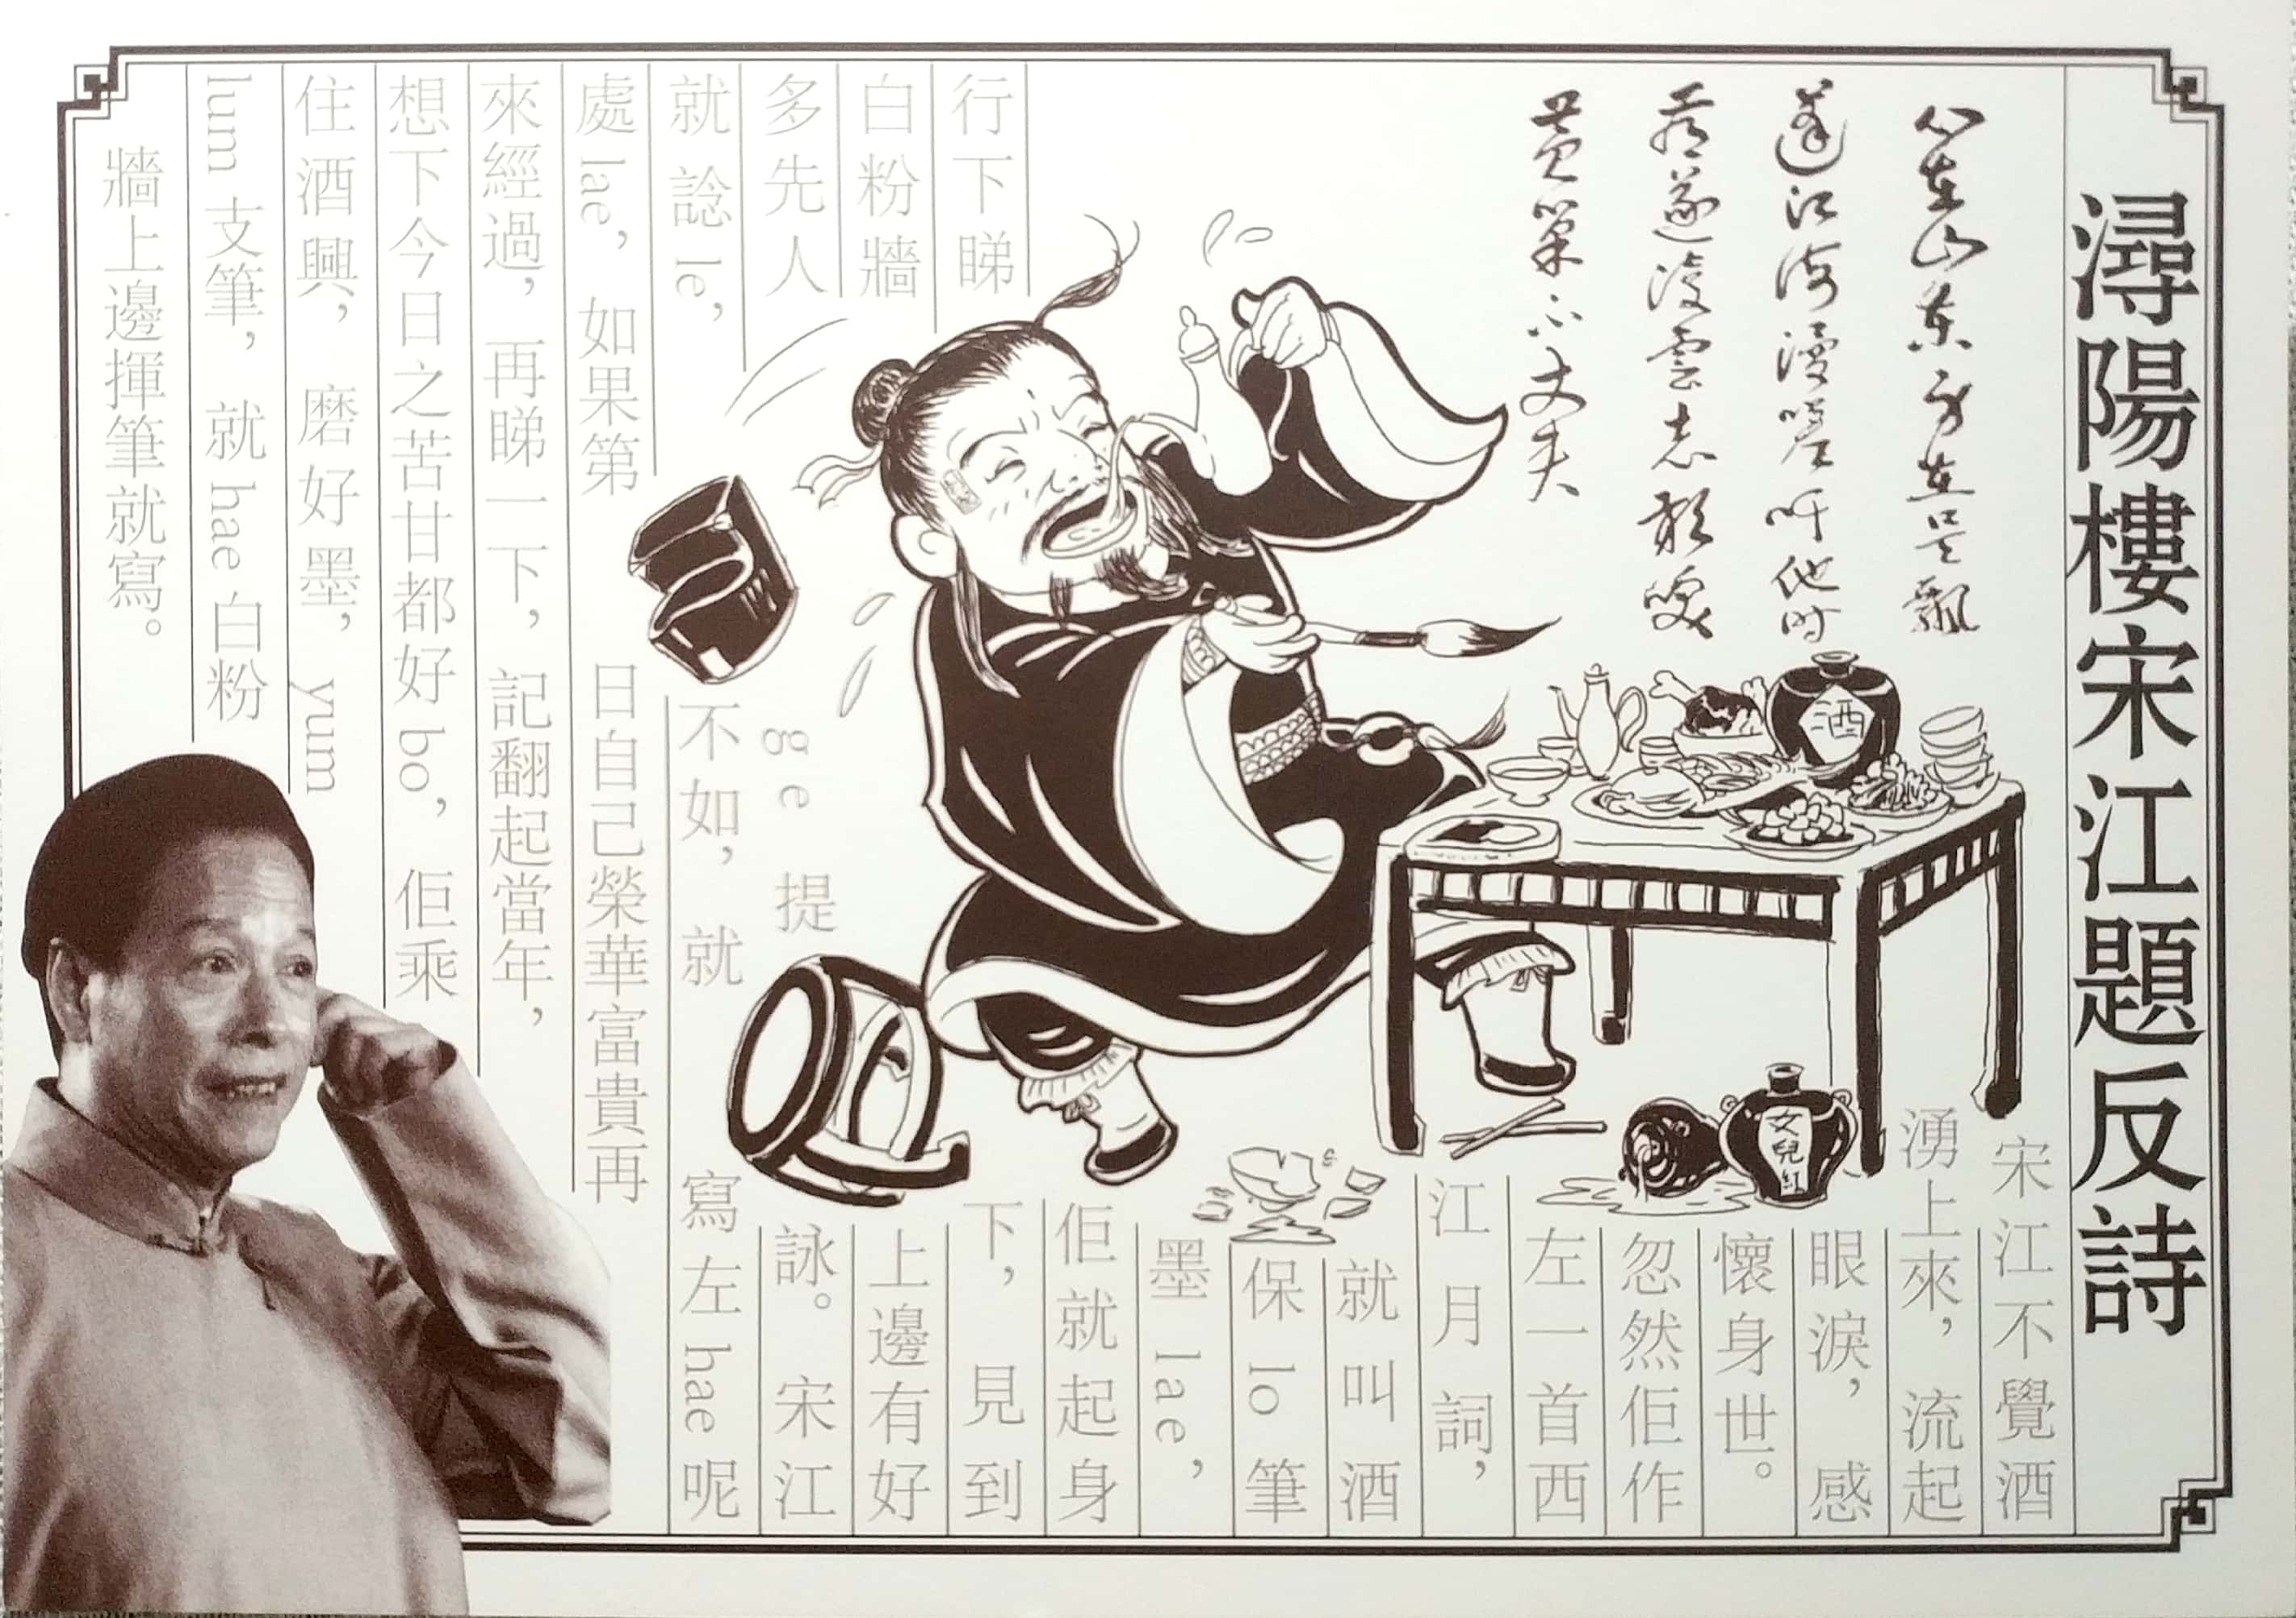 潯陽樓宋江題反詩
心在山東身在吳飄
蓬江海漫嗟吁他時
若遂凌雲志敢笑
黃巢不丈夫
酒
女兒紅
宋江不覺酒
湧上來，流起
眼淚，感
懷身世。
忽然佢作
左一首西
江月詞，
就叫酒
保 lo 筆
墨 lae，
佢就起身
行下睇下，見到
白粉牆上邊有好
多先人 ge 提詠。宋江
就諗 le，不如，就寫左 hae 呢
處 lae，如果第日自己榮華富貴再
來經過，再睇一下，記翻起當年，
想下今日之苦甘都好 bo，佢乘
住酒興，磨好墨，yum
lum 支筆，就 hae 白粉
牆上邊揮筆就寫。